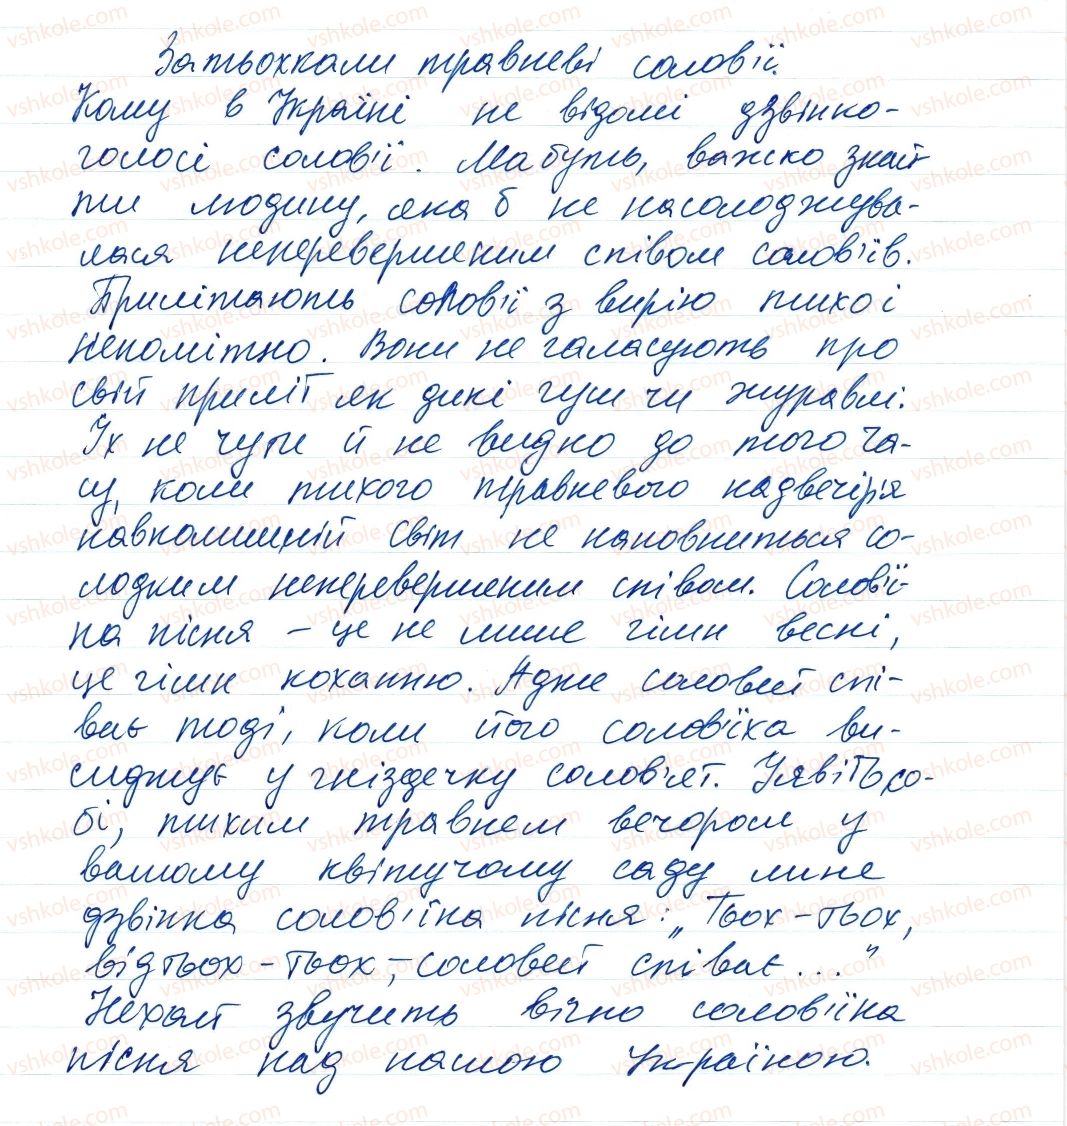 Затьохкали травневі солов'ї.
Кому в Україні не відомі дзвінко-
голосі солов'ї. Мабуть, важко знай
ти людину, яка б не насолоджува-
лася неперевершеним співом солов'їв.
Прилітають солов'ї з вирію тихо і
непомітно. Вони не галасують про
свій приліт як дикі гуси чи журавлі.
Їх не чути й не видно до того ча-
су, коли тихого травневого надвечір'я
навколишній світ не наповниться со-
лодким неперевершеним співом. Солов'ї-
на пісня – це не лише гімн весні,
це гімн коханню. Адже соловей спі-
ває тоді, коли його солов'їха ви-
сиджує у гніздечку солов'ят. Уявіть со-
бі, тихим травнем вечором у
вашому квітучому саду лине
дзвінка солов'їна пісня: „Тьох-тьох,
відтьох-тьох,-соловей співає..."
Нехай звучить вічно солов'їна
пісня над нашою Україною.